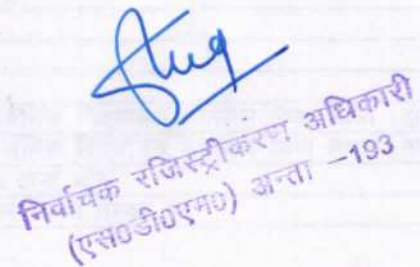 निर्वाचक रजिस्ट्रीकरण अधिकारी
(एस0डी0एम0) अन्ता -193